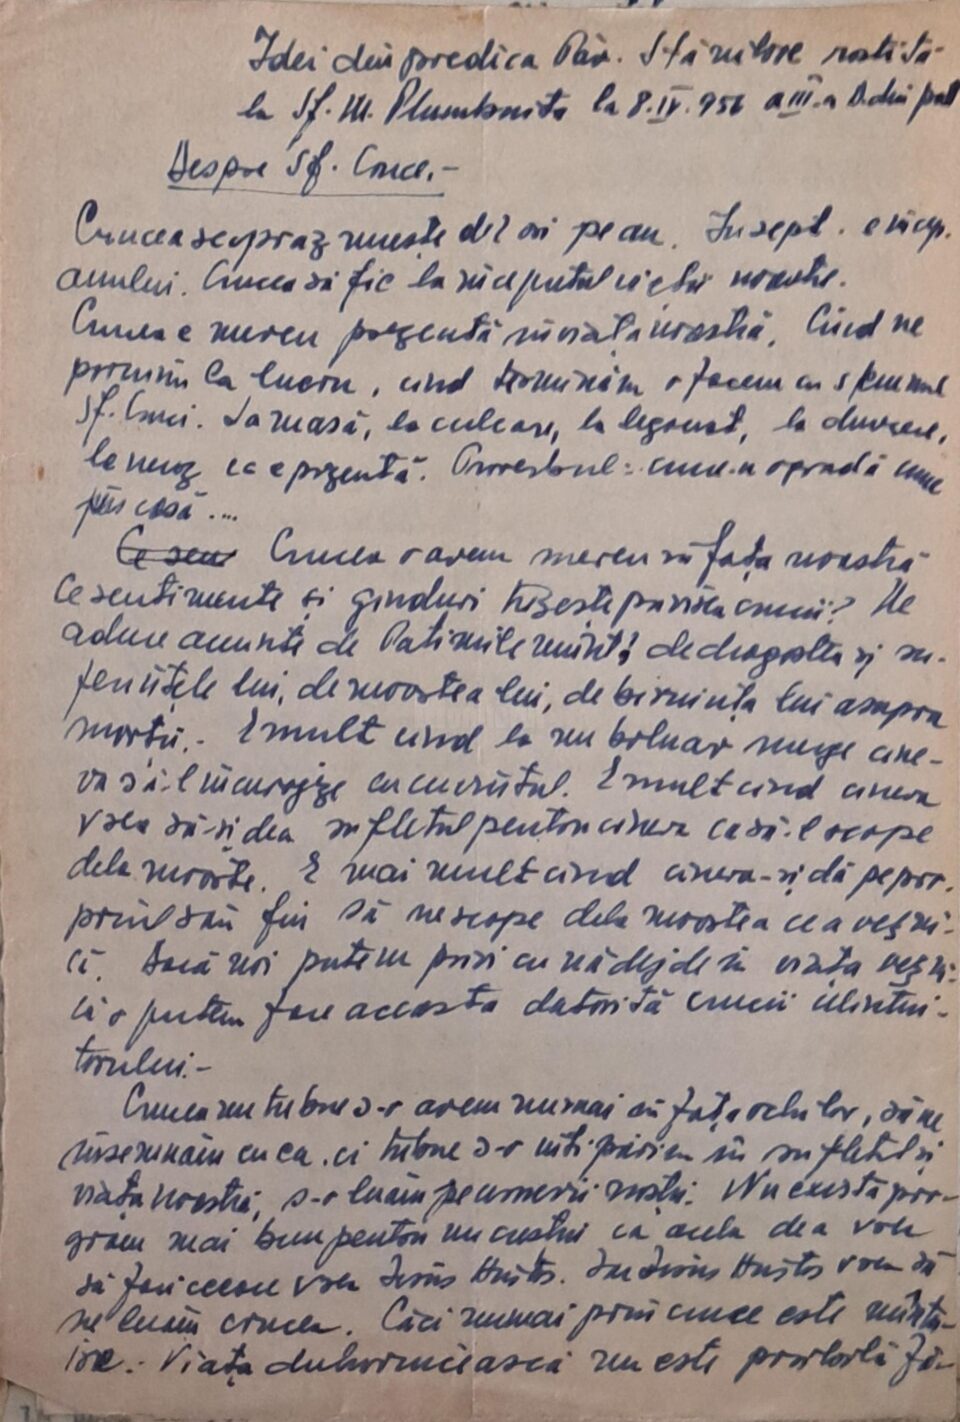 Idei din predica Păr. Stăniloae rostită
la Sf. M. Plumbuita la 8.IV.956 a III-a D. din post
Despre Sf. Cruce.-
Crucea se prăznuește de 2 ori pe an. In sept. e încep.
anului. Crucea să fie la începutul vieții noastre.
Crucea e mereu prezentă în viața noastră. Cînd ne
pornim la lucru, cînd terminăm o facem cu semnul
Sf. Cruci. La masă, la culcare, la legănat, la durere,
la necaz ea e prezentă. Proverbul: cruce-n ogradă cruce
prin casă...
Ce sen Crucea o avem mereu în fața noastră
Ce sentimente și gînduri trezește privirea crucii? Ne
aduce aminte de Patimile Mînt. de dragostea și su-
ferințele lui, de moartea lui, de biruința lui asupra
morții.- E mult cînd la un bolnav merge cine-
va să-l încurajeze cu cuvîntul. E mult cînd cineva
vrea să-și dea sufletul pentru cineva ca să-l scape
dela moarte. E mai mult cînd cineva-și dă pe pro-
priul său fiu să ne scape dela moartea cea veșni-
că. Dacă noi putem privi cu nădejde în viața veșni-
că o putem face aceasta datorită crucii Mîntui-
torului.-
Crucea nu trebue s-o avem numai în fața ochilor, să ne
însemnăm cu ea, ci trebue s-o întipărim în sufletul și
viața noastră, s-o luăm pe umerii noștri. Nu există pro-
gram mai bun pentru un creștin ca acela de a vrea
să faci ceeace vrea Iisus Hristos. Iar Iisus Hristos vrea să
ne luăm crucea. Căci numai prin cruce este mîntu-
ire. Viața duhovnicească nu este posibilă fă-